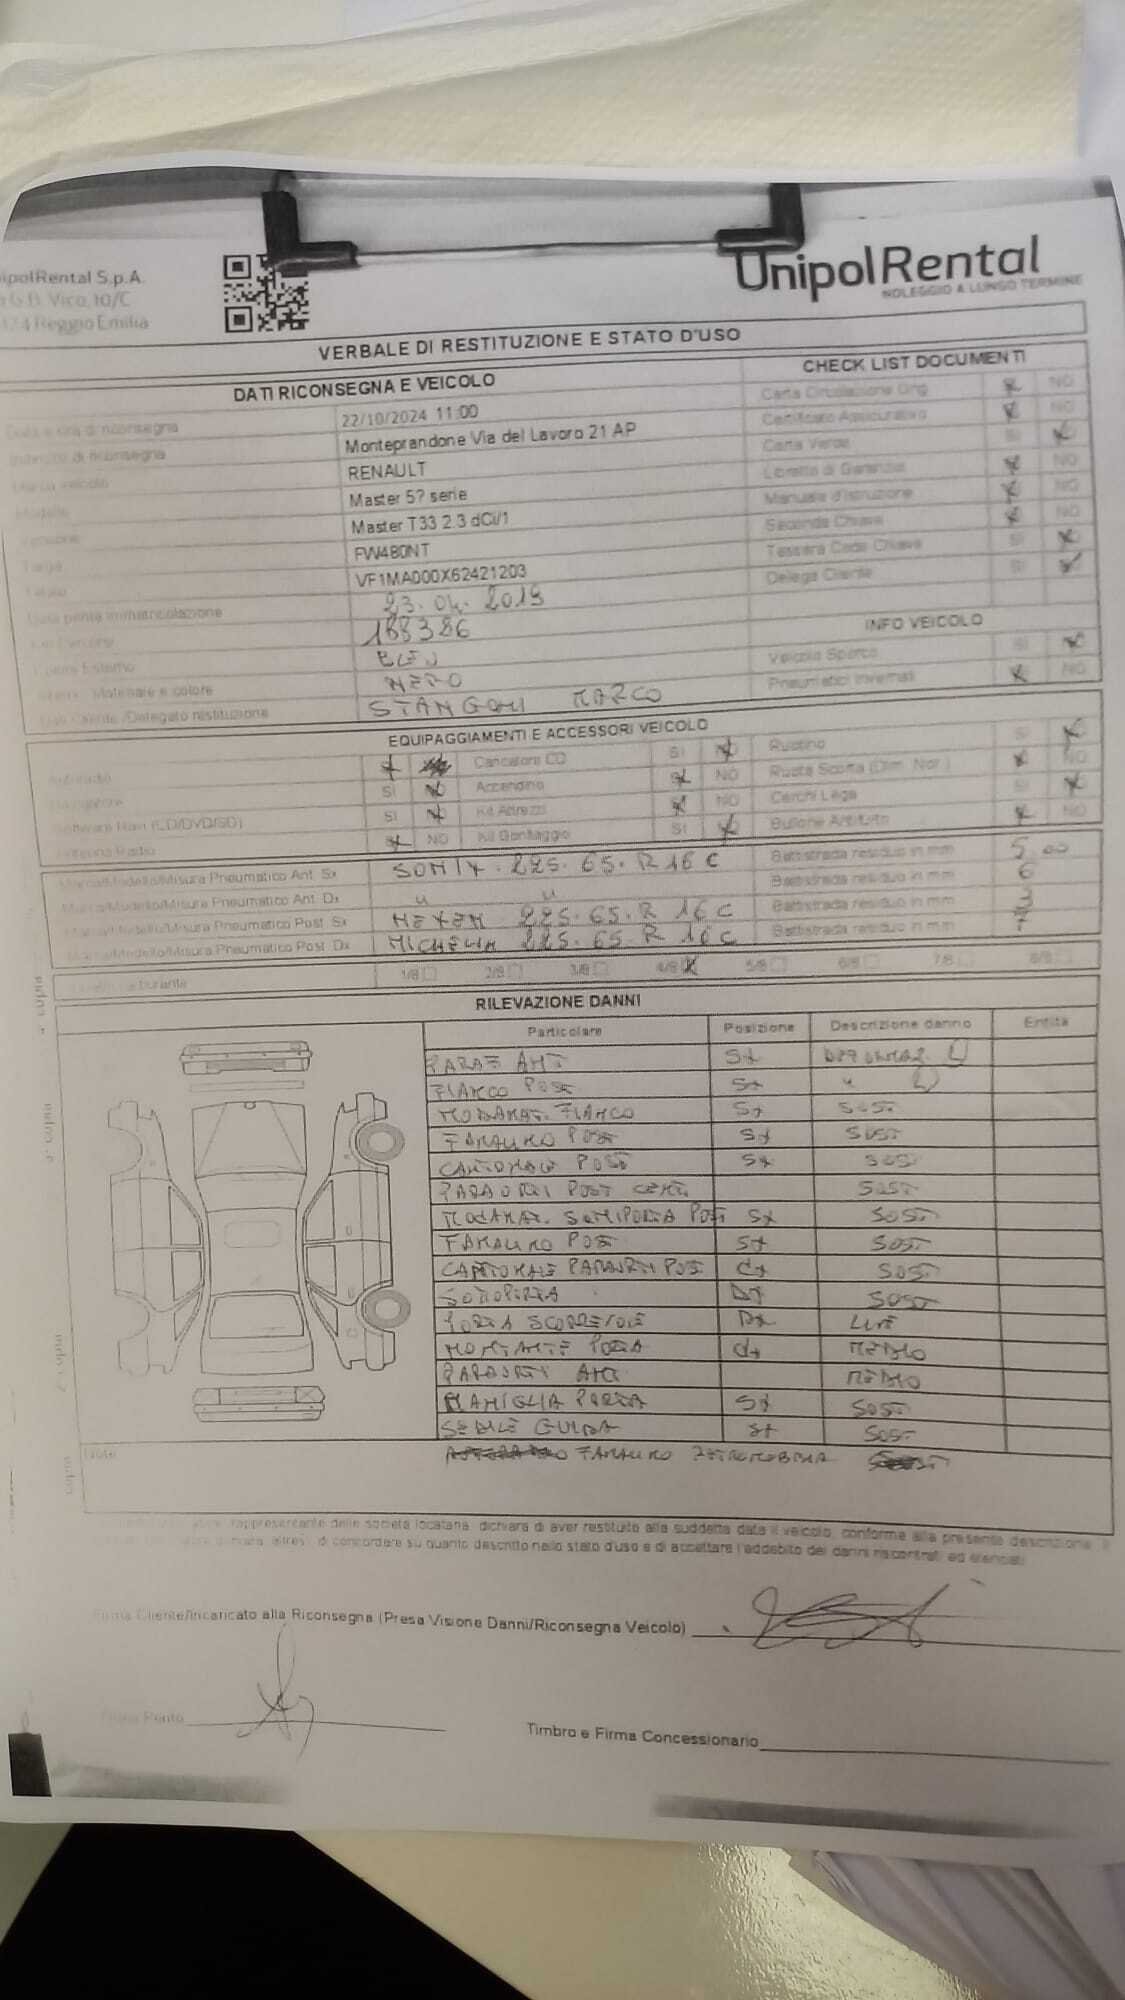 ipolRental S.p.A.
G.B. Vico, 10/C
Reggio Emilia
UnipolRental
NOLEGGIO A LUNGO TERMINE
VERBALE DI RESTITUZIONE E STATO D'USO
DATI RICONSEGNA E VEICOLO
CHECK LIST DOCUMENTI
Data e ora di riconsegna 22/10/2024 11:00
Carta Circolazione Orig. NO
Indirizzo di riconsegna Monteprandone Via del Lavoro 21 AP
Certificato Assicurativo NO
Marca veicolo RENAULT
Carta Verde SI
Modello Master 5? serie
Libretto di Garanzia NO
Versione Master T33 2.3 dCi/1
Manuale d'istruzione NO
Targa FW480NT
Seconda Chiave NO
Telaio VF1MA000X62421203
Tessera Code Chiave SI
Data prima immatricolazione 23.04.2019
Delega Cliente SI
Km Percorsi 188386
INFO VEICOLO
Colore Esterno BLEU
Veicolo Sporco SI
Interni: Materiale e colore NERO
Pneumatici Invernali NO
Cliente/Delegato restituzione STANGONI MARCO
EQUIPAGGIAMENTI E ACCESSORI VEICOLO
Autoradio Caricatore CD SI Ruotino SI
Navigatore SI Accendino NO Ruota Scorta (Dim. Nor.) NO
Software Navi (CD/DVD/SD) SI Kit Attrezzi NO Cerchi Lega SI
Antenna Radio NO Kit Gonfiaggio SI Bullone Antifurto NO
Marca/Modello/Misura Pneumatico Ant. Sx 225.65.R16C Battistrada residuo in mm 5.00
Marca/Modello/Misura Pneumatico Ant. Dx u u Battistrada residuo in mm 6
Marca/Modello/Misura Pneumatico Post. Sx NEXEN 225.65.R 16C Battistrada residuo in mm 3
Marca/Modello/Misura Pneumatico Post. Dx MICHELIN 225.65.R 16C Battistrada residuo in mm 7
carburante 1/8 2/8 3/8 4/8 5/8 6/8 7/8 8/8
RILEVAZIONE DANNI
Particolare Posizione Descrizione danno Entità
ANT Sx
FIANCO POST Sx u
MODANAT. FIANCO Sx SOST
FANALINO POST Sx SOST
CANTONALE POST Sx SOST
PARAURTI POST CENT. SOST
MODANAT. SEMIPORTA POST Sx SOST
FANALINO POST Sx SOST
CANTONALE PARAURTI POST dx SOST
SOTTOPORTA DX SOST
PORTA SCORREVOLE Dx LIEVE
MONTANTE PORTA dx MEDIO
PARAURTI ANT MEDIO
MANIGLIA PORTA Sx SOST
SEDILE GUIDA Sx SOST
Note
FANALINO RETRONEBBIA
rappresentante della società locataria, dichiara di aver restituito alla suddetta data il veicolo, conforme alla presente descrizione. Il
dichiara, altresì, di concordare su quanto descritto nello stato d'uso e di accettare l'addebito dei danni riscontrati ed elencati.
Firma Cliente/Incaricato alla Riconsegna (Presa Visione Danni/Riconsegna Veicolo)
Firma Perito
Timbro e Firma Concessionario